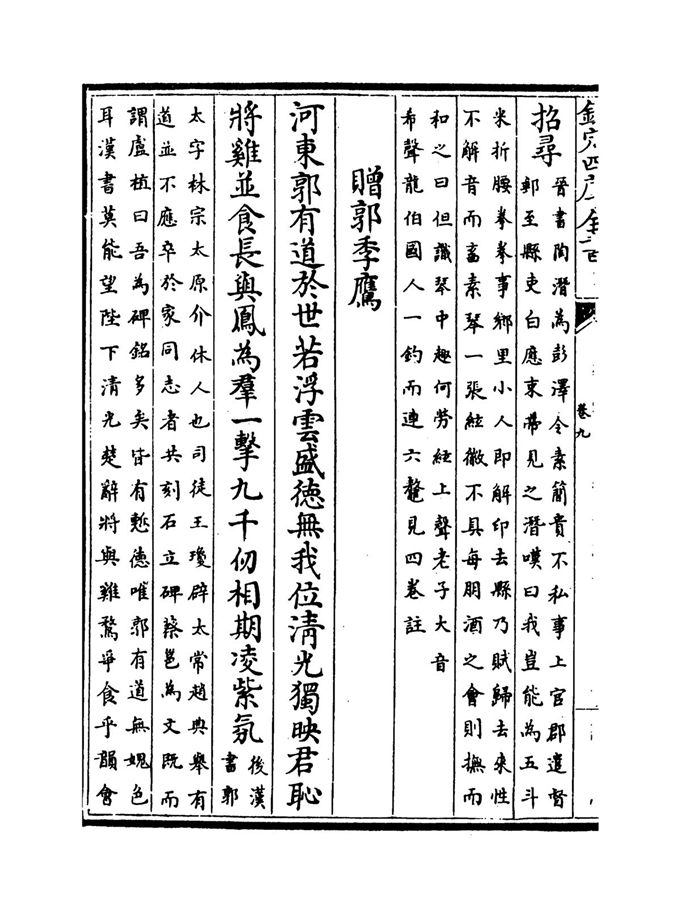 欽定四庫全書
卷九
招尋
晉書陶潛為彭澤令素簡貴不私事上官郡遣督
郵至縣吏白應束帶見之潛嘆曰我豈能為五斗
米折腰拳拳事鄉里小人即解印去縣乃賦歸去來性
不解音而畜素琴一張絃徽不具每朋酒之會則撫而
和之曰但識琴中趣何勞絃上聲老子大音
希聲龍伯國人一釣而連六鼇見四卷註
贈郭季鷹
河東郭有道於世若浮雲盛德無我位清光獨映君恥
將雞並食長與鳳為羣一擊九千仞相期凌紫氛
後漢
書郭
太字林宗太原介休人也司徒王瓊辟太常趙典舉有
道並不應卒於家同志者共刻石立碑蔡邕為文既而
謂盧植曰吾為碑銘多矣皆有慙德唯郭有道無媿色
耳漢書莫能望陛下清光楚辭將與雞鶩爭食乎韻會